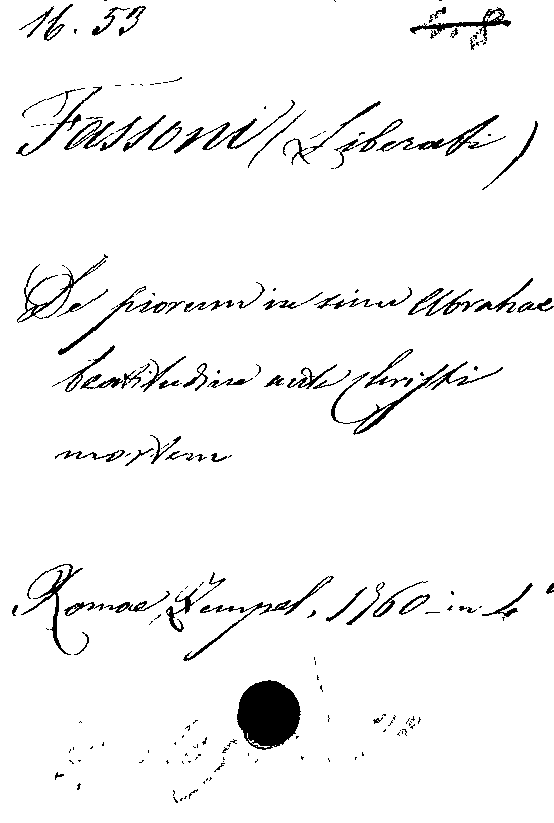 16. 53
Fassoni (Liberati)
De piorum in sinu Abrahae
beatitudine ante Christi
mortem
Romae, Zempel, 1760 - in 4°